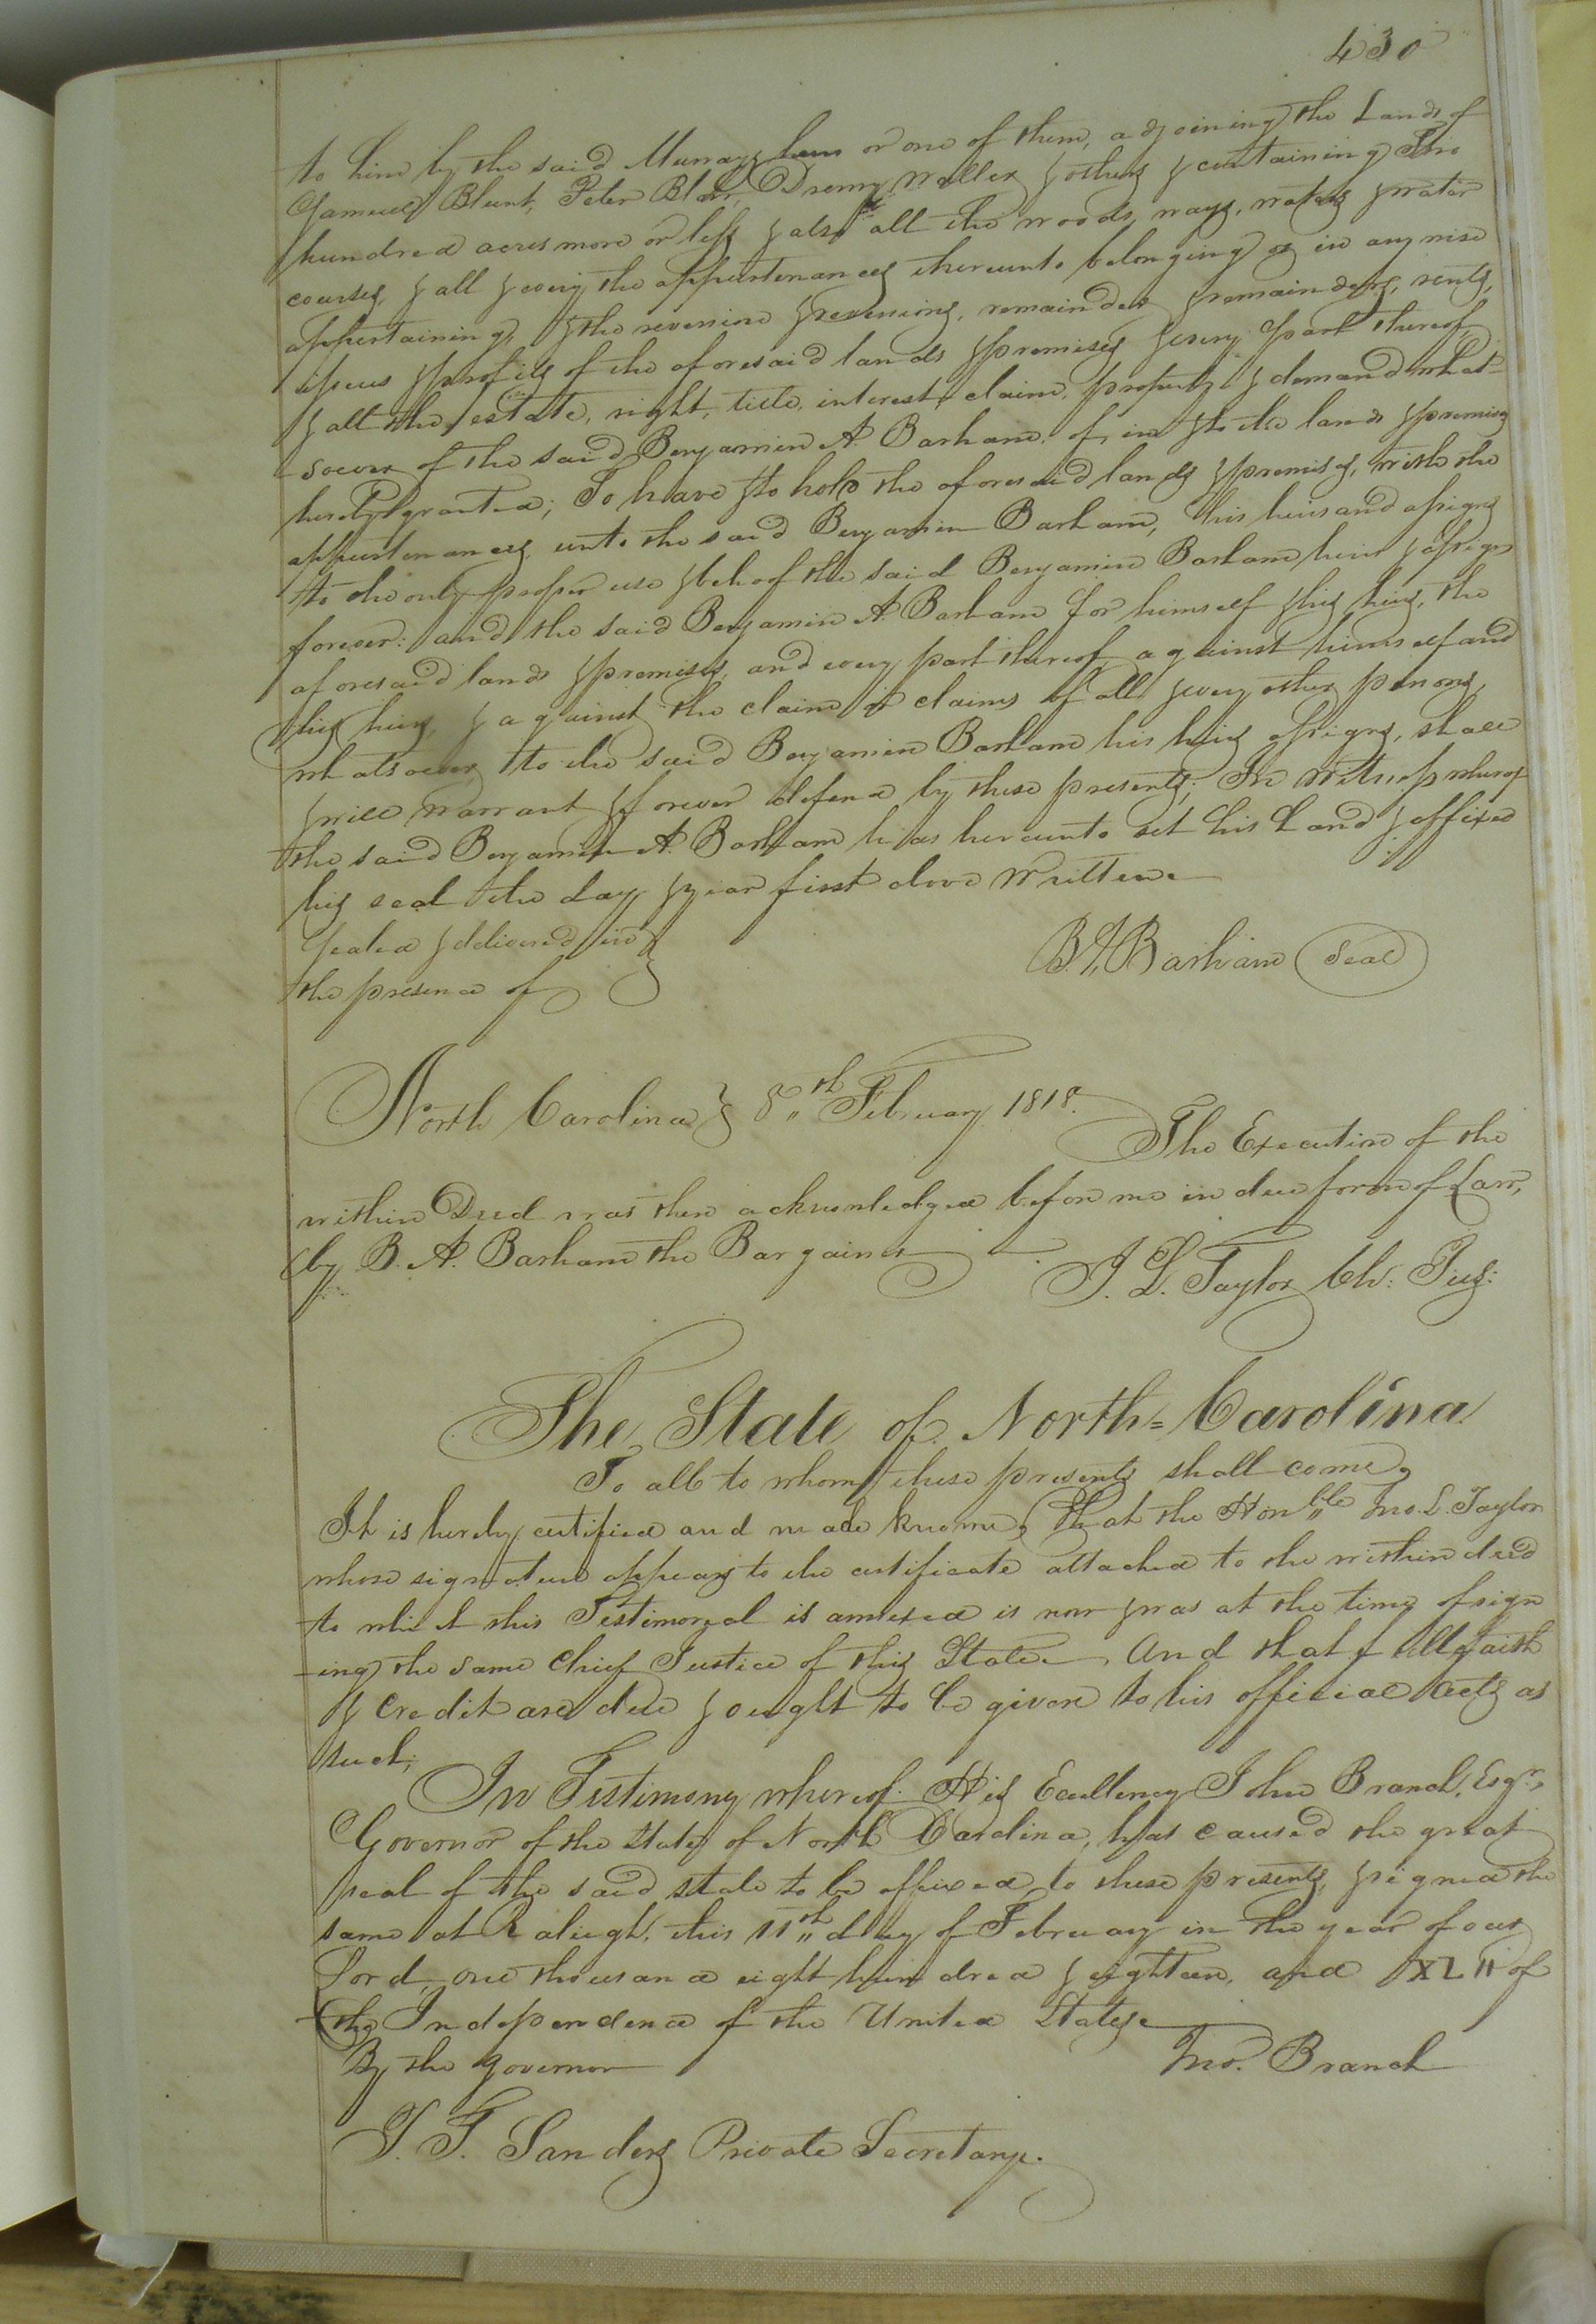 430
to him by the said Murray & heirs or one of them, adjoining the Lands of
Samuel Blunt, Peter Blair, Drewry Waller & others & containing Two
hundred acres more or less & also all the woods, ways, waters & water
courses, & all & every the appurtenances thereunto belonging or in any wise
appertaining, & the reversion & reversions, remainder & remainders, rents,
issues & profits of the aforesaid lands & premises & every part thereof,
& all the estate, right, title, interest, claim, property & demand what-
-soever of the said Benjamin A. Barham of, in & to the lands & premises
hereby granted; To have & to hold the aforesaid lands & premises, with the
appurtenances unto the said Benjamin Barham, his heirs and assigns
to the only proper use & behoof the said Benjamin Barham heirs & assigns
forever: and the said Benjamin A. Barham for himself & his heirs, the
aforesaid lands & premises, and every part thereof against himself and
his heirs, & against the claim or claims of all & every other persons,
whatsoever, to the said Benjamin Barham his heirs assigns, shall
& will warrant & forever defend by these presents; In Witness whereof
the said Benjamin A. Barham has hereunto set his hand & affixed
his seal the day & year first above Written
Sealed & delivered in }
the presence of }
B. A. Barham Seal
North Carolina } 8th February 1818.
The Execution of the
within Deed was then acknowledged before me in due form of Law,
by B. A. Barham the Bargainer
J. L. Taylor Ch: Jus:
The State of North=Carolina
To all to whom these presents shall come,
It is hereby certified and made known, That the Honble Jno. L. Taylor
whose signature appears to the certificate attached to the within deed
to which this Testimonial is annexed is now & was at the time of sign
-ing the same Chief Justice of this State, and that full faith
& credit are due & ought to be given to his official acts as
such;
In Testimony whereof His Excellency John Branch, Esqr,
Governor of the State of North Carolina, has caused the great
seal of the said state to be affixed to these presents, & signed the
same at Raliegh, this 11th day of February in the year of our
Lord, one thousand eight hundred & eighteen, and XLII of
the Independence of the United States
By the Governor
Jno. Branch
T. F. Sanders Private Secretary.